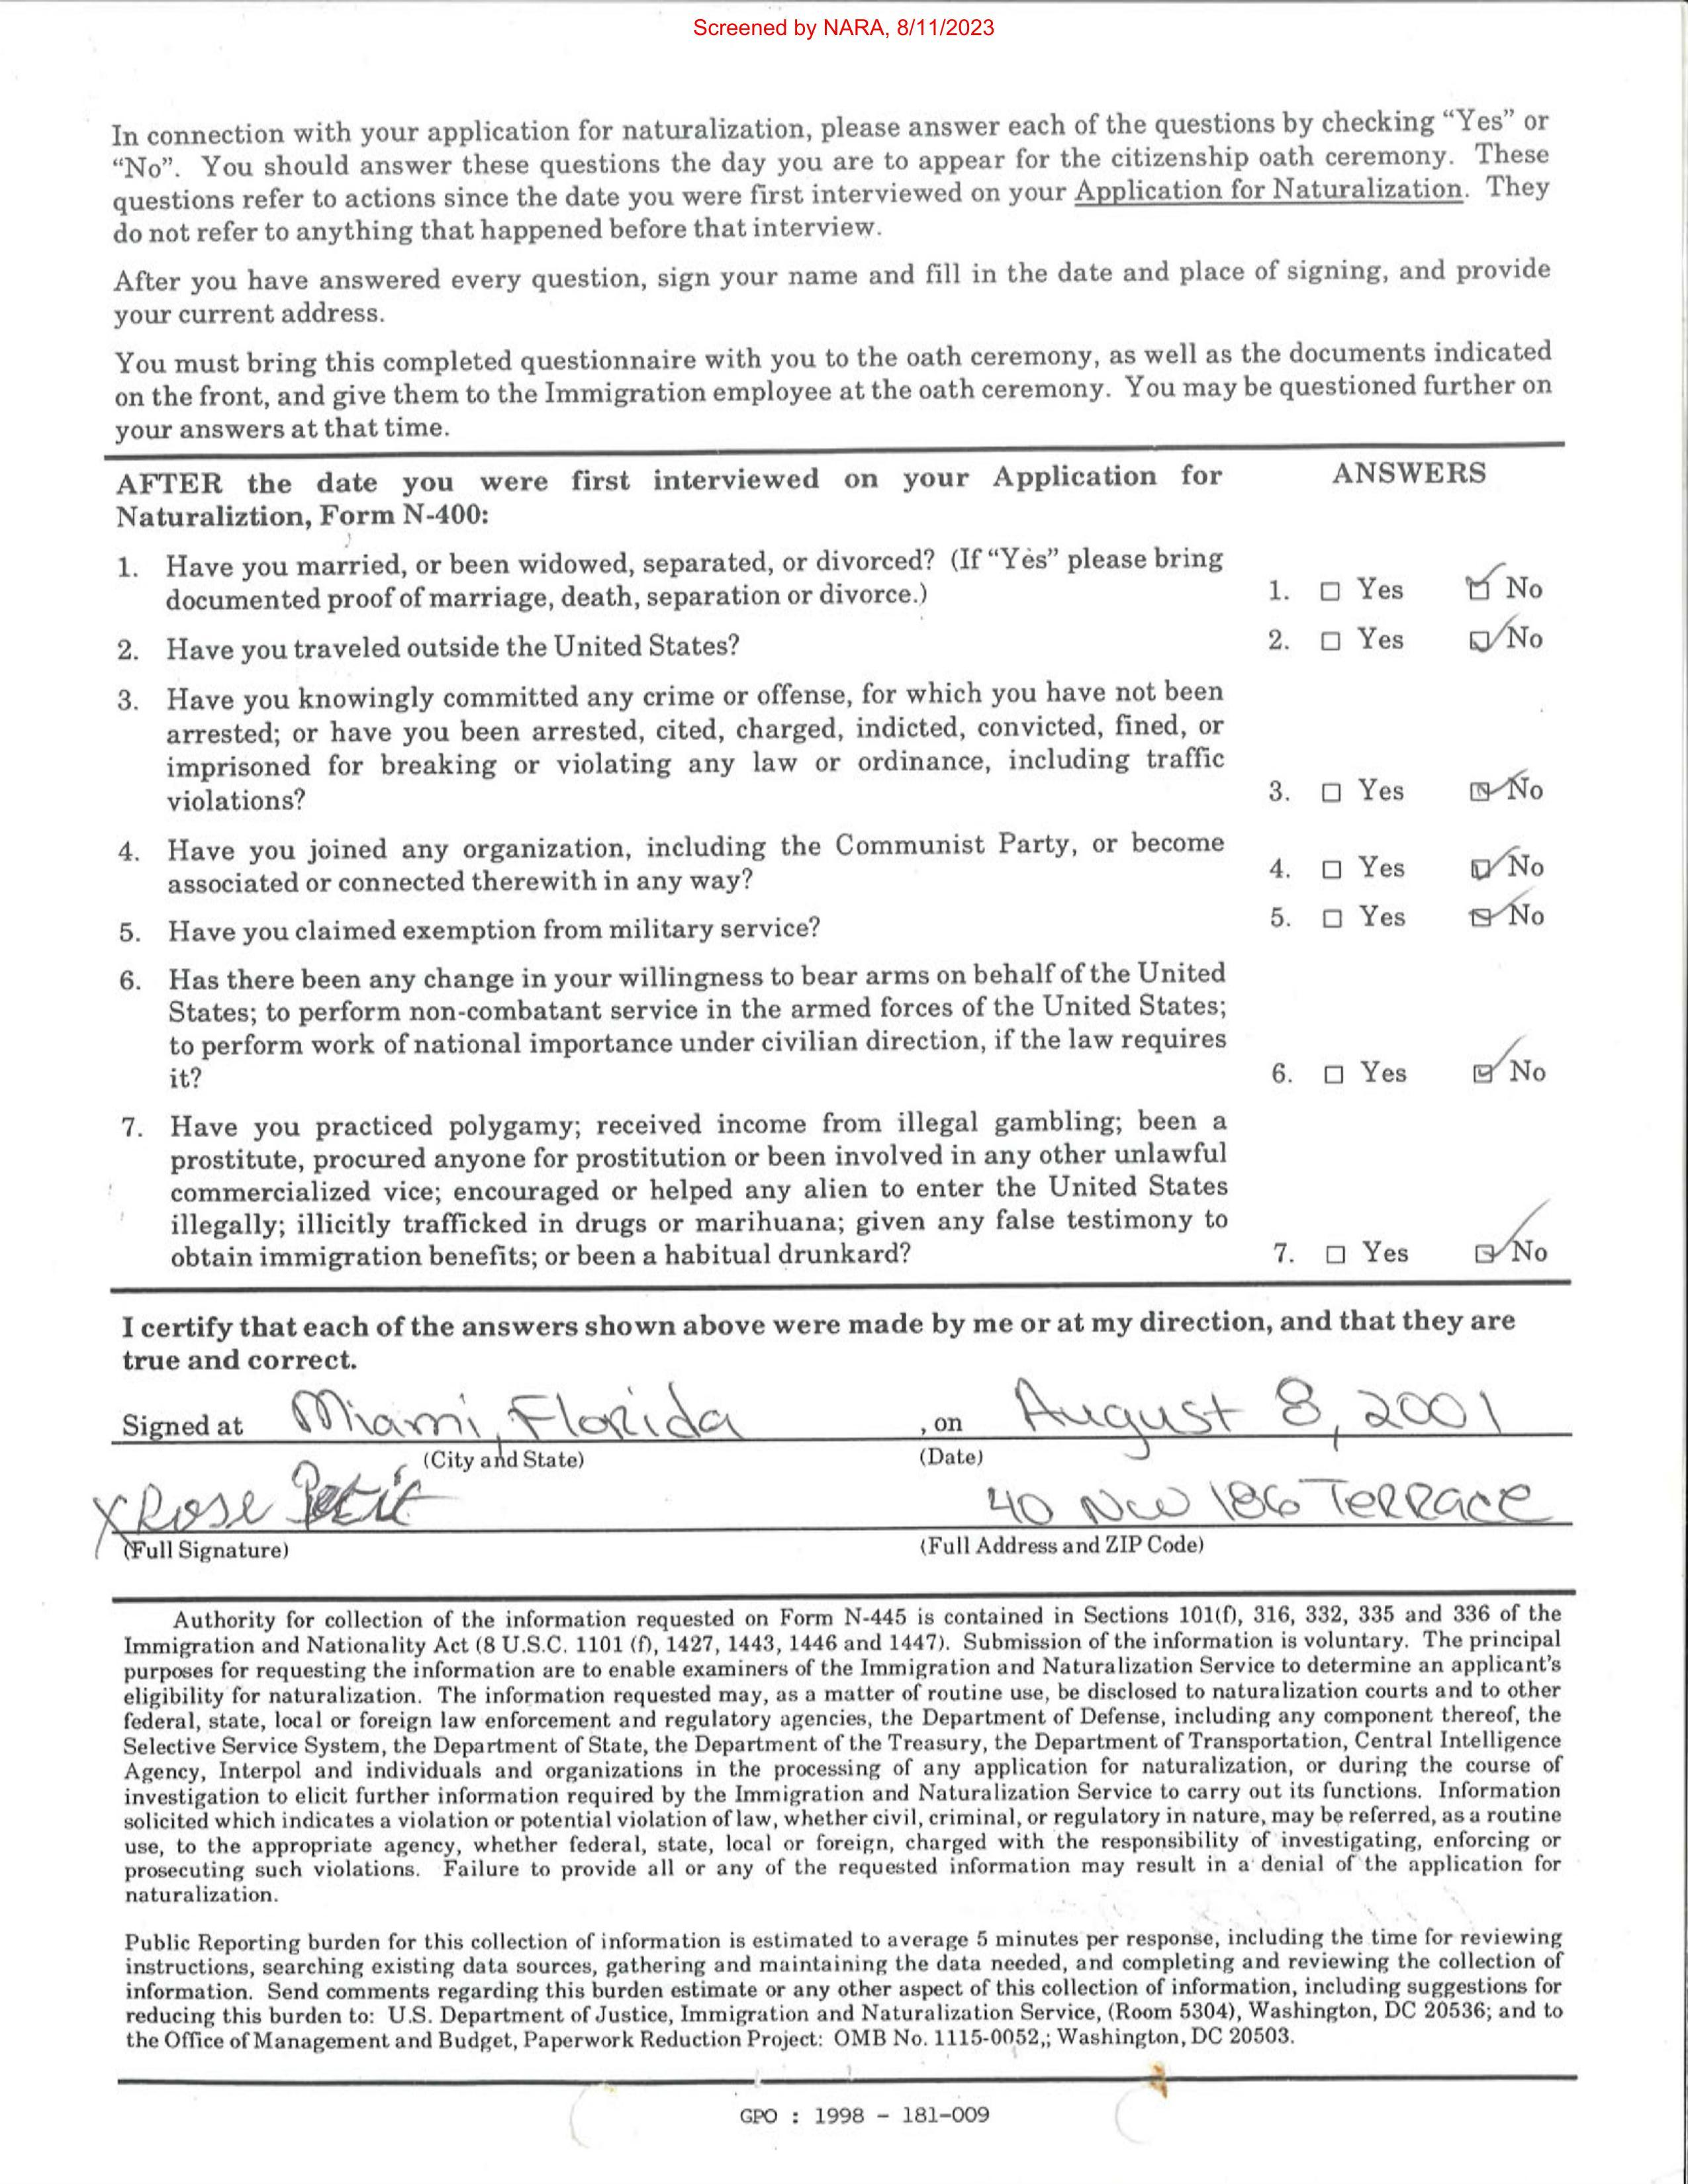 Screened by NARA, 8/11/2023
In connection with your application for naturalization, please answer each of the questions by checking “Yes” or
“No”. You should answer these questions the day you are to appear for the citizenship oath ceremony. These
questions refer to actions since the date you were first interviewed on your Application for Naturalization. They
do not refer to anything that happened before that interview.
After you have answered every question, sign your name and fill in the date and place of signing, and provide
your current address.
You must bring this completed questionnaire with you to the oath ceremony, as well as the documents indicated
on the front, and give them to the Immigration employee at the oath ceremony. You may be questioned further on
your answers at that time.
AFTER the date you were first interviewed on your Application for ANSWERS
Naturaliztion, Form N-400:
1. Have you married, or been widowed, separated, or divorced? (If “Yes” please bring
documented proof of marriage, death, separation or divorce.) 1. ☐ Yes ☑ No
2. Have you traveled outside the United States? 2. ☐ Yes ☑ No
3. Have you knowingly committed any crime or offense, for which you have not been
arrested; or have you been arrested, cited, charged, indicted, convicted, fined, or
imprisoned for breaking or violating any law or ordinance, including traffic
violations? 3. ☐ Yes ☑ No
4. Have you joined any organization, including the Communist Party, or become
associated or connected therewith in any way? 4. ☐ Yes ☑ No
5. Have you claimed exemption from military service? 5. ☐ Yes ☑ No
6. Has there been any change in your willingness to bear arms on behalf of the United
States; to perform non-combatant service in the armed forces of the United States;
to perform work of national importance under civilian direction, if the law requires
it? 6. ☐ Yes ☑ No
7. Have you practiced polygamy; received income from illegal gambling; been a
prostitute, procured anyone for prostitution or been involved in any other unlawful
commercialized vice; encouraged or helped any alien to enter the United States
illegally; illicitly trafficked in drugs or marihuana; given any false testimony to
obtain immigration benefits; or been a habitual drunkard? 7. ☐ Yes ☑ No
I certify that each of the answers shown above were made by me or at my direction, and that they are
true and correct.
Signed at Miami, Florida , on August 8, 2001
(City and State) (Date)
X Rose Petit 40 NW 186 Terrace
(Full Signature) (Full Address and ZIP Code)
Authority for collection of the information requested on Form N-445 is contained in Sections 101(f), 316, 332, 335 and 336 of the
Immigration and Nationality Act (8 U.S.C. 1101 (f), 1427, 1443, 1446 and 1447). Submission of the information is voluntary. The principal
purposes for requesting the information are to enable examiners of the Immigration and Naturalization Service to determine an applicant’s
eligibility for naturalization. The information requested may, as a matter of routine use, be disclosed to naturalization courts and to other
federal, state, local or foreign law enforcement and regulatory agencies, the Department of Defense, including any component thereof, the
Selective Service System, the Department of State, the Department of the Treasury, the Department of Transportation, Central Intelligence
Agency, Interpol and individuals and organizations in the processing of any application for naturalization, or during the course of
investigation to elicit further information required by the Immigration and Naturalization Service to carry out its functions. Information
solicited which indicates a violation or potential violation of law, whether civil, criminal, or regulatory in nature, may be referred, as a routine
use, to the appropriate agency, whether federal, state, local or foreign, charged with the responsibility of investigating, enforcing or
prosecuting such violations. Failure to provide all or any of the requested information may result in a denial of the application for
naturalization.
Public Reporting burden for this collection of information is estimated to average 5 minutes per response, including the time for reviewing
instructions, searching existing data sources, gathering and maintaining the data needed, and completing and reviewing the collection of
information. Send comments regarding this burden estimate or any other aspect of this collection of information, including suggestions for
reducing this burden to: U.S. Department of Justice, Immigration and Naturalization Service, (Room 5304), Washington, DC 20536; and to
the Office of Management and Budget, Paperwork Reduction Project: OMB No. 1115-0052,; Washington, DC 20503.
GPO : 1998 - 181-009